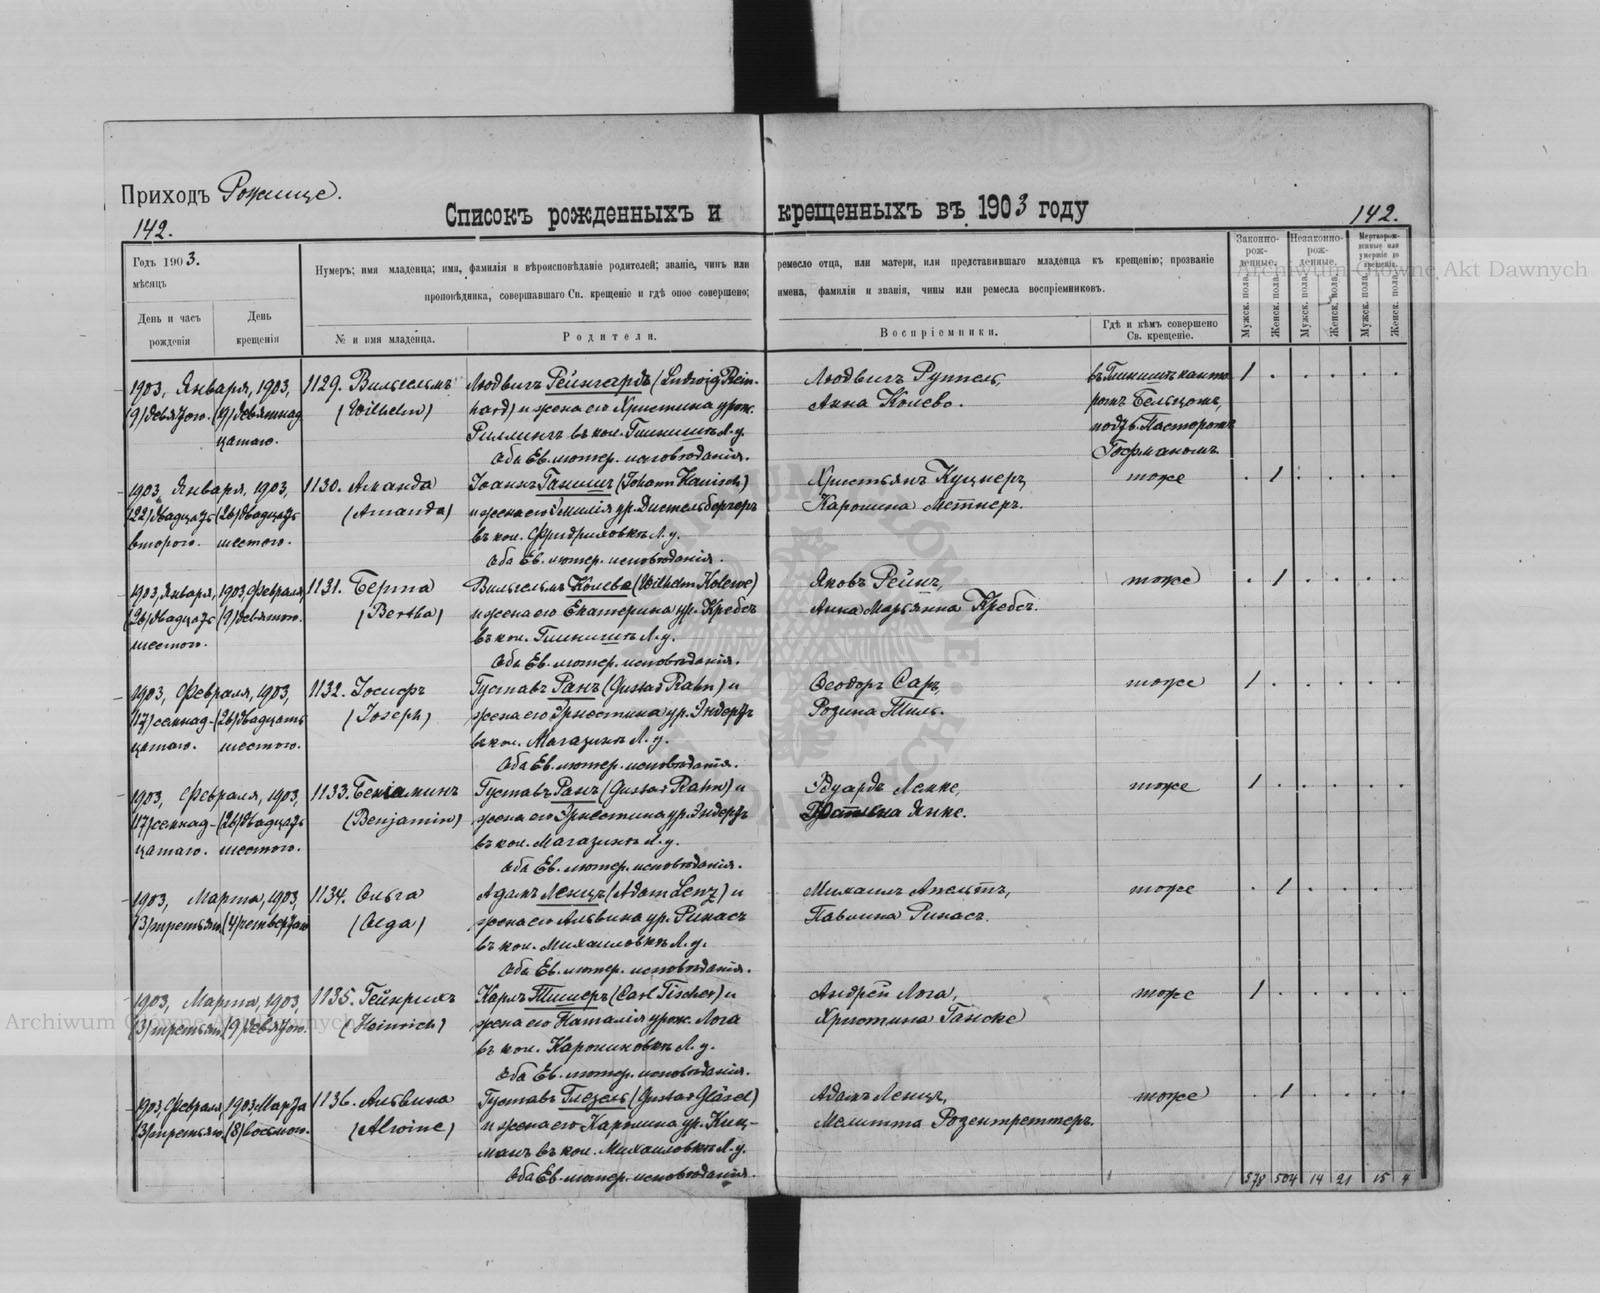 Приходъ Рожище.
142.
Списокъ рожденныхъ и крещенныхъ въ 1903 году
142.
Годъ 1903.
мѣсяцъ
День и часъ рожденія
День крещенія
Нумеръ; имя младенца; имя, фамилія и вѣроисповѣданіе родителей; званіе, чинъ или ремесло отца, или матери, или представившаго младенца къ крещенію; прозваніе
проповѣдника, совершавшаго Св. крещеніе и гдѣ оное совершено; имена, фамиліи и званія, чины или ремесла воспріемниковъ.
№ и имя младенца.
Родители.
Воспріемники.
Гдѣ и кѣмъ совершено Св. крещеніе.
Законно-рож-денные.
Незаконно-рож-денные.
Мертворож-денные или умершіе до крещенія.
Мужск. пола.
Женск. пола.
Мужск. пола.
Женск. пола.
Мужск. пола.
Женск. пола.
1903, Января, 1903, 1129. Вильгельмъ Людвигъ Рейнгардъ (Ludwig Rein- Людвигъ Руппель, въ Глинищѣ канто- 1
(9) девятого. (19) девятнад- (Wilhelm) hard) и жена его Христина урож. Анна Колево. ромъ Бельцомъ,
цатаго. Риллингъ въ кол. Глинищѣ Л. у. подтв. Пасторомъ
Оба Ев. лютер. исповѣданія. Гофманомъ
1903, Января, 1903, 1130. Аманда Іоаннъ Ганишъ (Johann Hanisch) Христьянъ Куцнеръ, тоже 1
(22) двадцать (26) двадцать (Amanda) и жена его Эмилія ур. Дистельбергеръ Каролина Метнеръ.
второго. шестого. въ кол. Фридриховкѣ Л. у.
Оба Ев. лютер. исповѣданія.
1903, Января, 1903, Февраля, 1131. Берта Вильгельмъ Колева (Wilhelm Kolewe) Яковъ Рейнъ, тоже 1
(26) двадцать (9) девятого. (Bertha) и жена его Екатерина ур. Кребсъ Анна Марьянна Кребсъ.
шестого. въ кол. Глинищѣ Л. у.
Оба Ев. лютер. исповѣданія.
1903, Февраля, 1903, 1132. Іосифъ Густавъ Ранъ (Gustav Rahn) и Ѳеодоръ Саръ, тоже 1
(17) семнад- (26) двадцать (Joseph) жена его Эрнестина ур. Эндертъ Розина Тиль.
цатаго. шестого. въ кол. Магазинѣ Л. у.
Оба Ев. лютер. исповѣданія.
1903, Февраля, 1903, 1133. Беніаминъ Густавъ Ранъ (Gustav Rahn) и Эдуардъ Ленке, тоже 1
(17) семнад- (26) двадцать (Benjamin) жена его Эрнестина ур. Эндертъ Янке.
цатаго. шестого. въ кол. Магазинѣ Л. у.
Оба Ев. лютер. исповѣданія.
1903, Марта, 1903, 1134. Ольга Адамъ Ленцъ (Adam Lenz) и Михаилъ Апельтъ, тоже 1
(3) третьяго, (4) четвертаго (Olga) жена его Альвина ур. Ринасъ Павлина Ринасъ.
въ кол. Михаиловкѣ Л. у.
Оба Ев. лютер. исповѣданія.
1903, Марта, 1903, 1135. Гейнрихъ Карлъ Тишеръ (Carl Tischer) и Андрей Лога, тоже 1
(3) третьяго, (9) девятого. (Heinrich) жена его Наталія урож. Лога Христина Ганске
въ кол. Каролиновкѣ Л. у.
Оба Ев. лютер. исповѣданія.
1903, Февраля, 1903 Марта 1136. Альвина Густавъ Глезель (Gustav Gläsel) Адамъ Ленцъ, тоже 1
(3) третьяго (8) восьмого. (Alwine) и жена его Каролина ур. Киц- Мелитта Розентреттеръ.
манъ въ кол. Михаиловкѣ Л. у.
Оба Ев. лютер. исповѣданія.
578 504 14 21 15 4
Archiwum Główne Akt Dawnych
Archiwum Główne Akt Dawnych